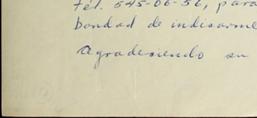 tél. 545-06-56, para
bondad de indicarme
agradesiendo su